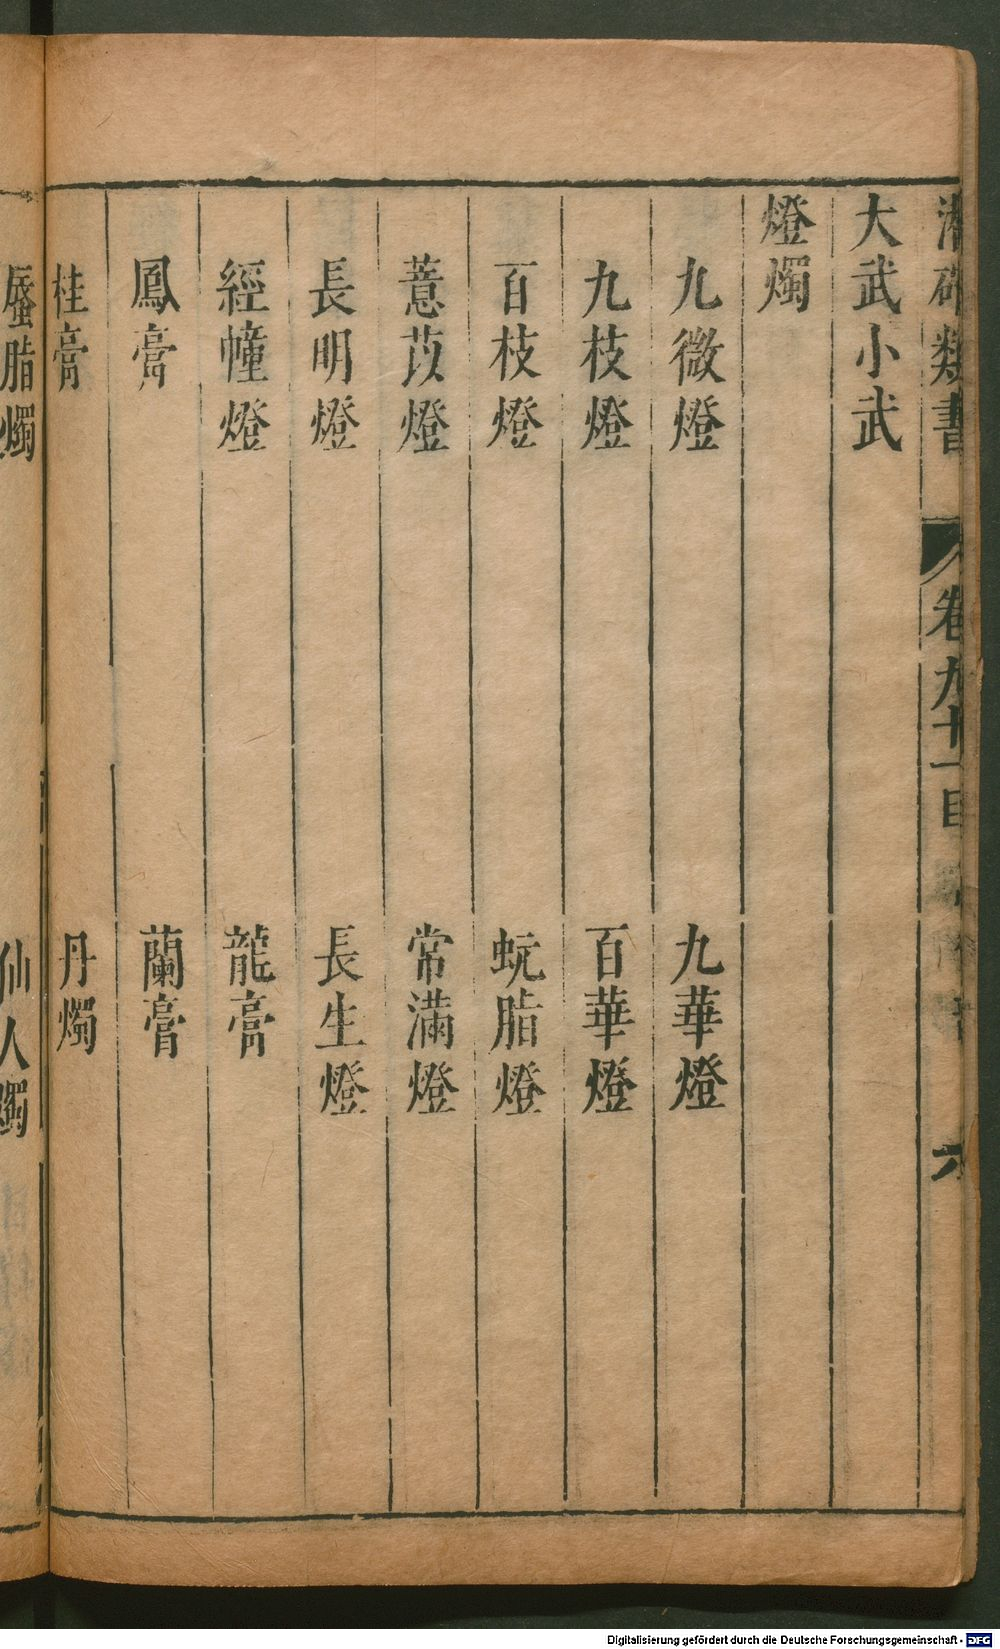 潛確類書 卷九十一目
大武小武
燈燭
九微燈 九華燈
九枝燈 百華燈
百枝燈 蚖脂燈
薏苡燈 常滿燈
長明燈 長生燈
經幢燈 龍膏
鳳膏 蘭膏
桂膏 丹燭
蜃脂燭 仙人燭
Digitalisierung gefördert durch die Deutsche Forschungsgemeinschaft - DFG